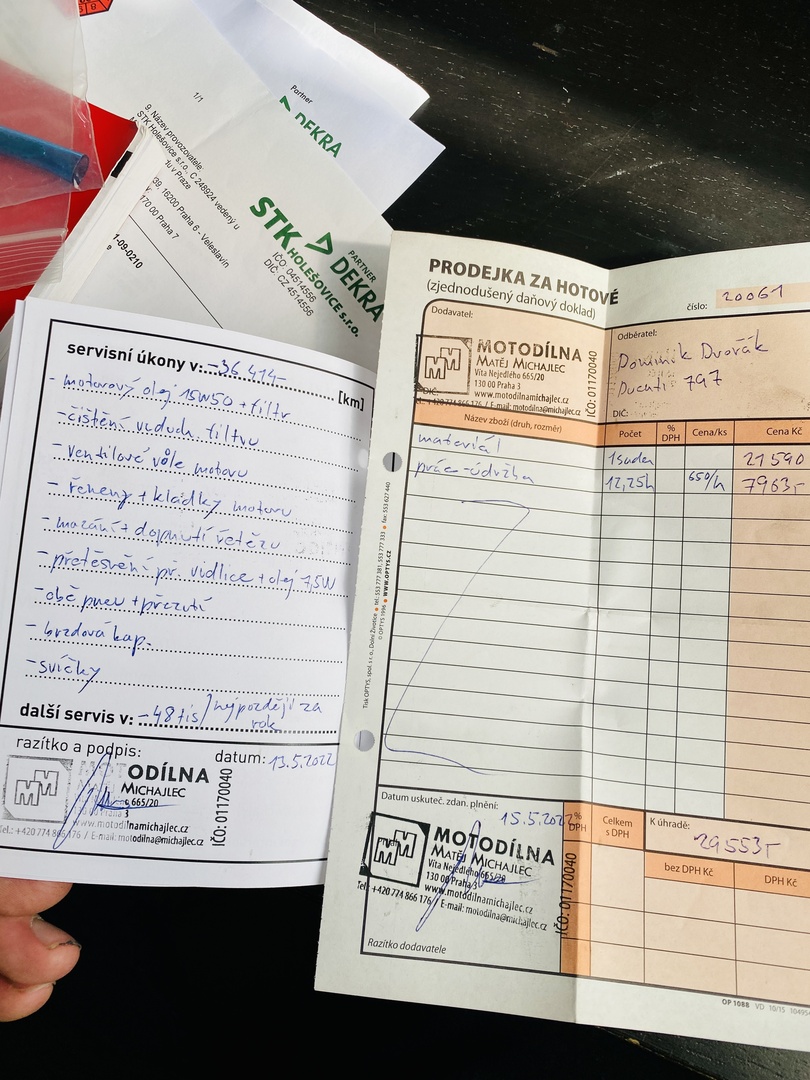 1/1
Partner
DEKRA
9. Název provozovatele:
STK Holešovice s.r.o., C 246924 vedený u
du v Praze
39, 16200 Praha 6 - Veleslavín
170 00 Praha 7
1-09-0210
STK
HOLEŠOVICE s.r.o.
PARTNER
DEKRA
IČO: 04514556
DIČ: CZ 4514556
servisní úkony v: -36 414- [km]
- motorový olej 15W50 + filtr
- čištění vzduch. filtru
- ventilové vůle motoru
- řemeny + kladky motoru
- mazání + dopnutí řetězu
- přetěsnění př. vidlice + olej 7,5W
- obě pneu + přezutí
- brzdová kap.
- svíčky
další servis v: -48 tis/nejpozději za
rok
razítko a podpis:
datum: 13.5.2022
MOTODÍLNA
MICHAJLEC
665/20
3
www.motodilnamichajlec.cz
Tel.: +420 774 866 176 / E-mail: motodilna@michajlec.cz
IČO: 01170040
PRODEJKA ZA HOTOVÉ
(zjednodušený daňový doklad)
číslo: 20061
Dodavatel:
MOTODÍLNA
MATĚJ MICHAJLEC
Víta Nejedlého 665/20
130 00 Praha 3
www.motodilnamichajlec.cz
+420 774 866 176 / E-mail: motodilna@michajlec.cz
IČO: 01170040
DIČ:
Odběratel:
Dominik Dvořák
Ducati 797
DIČ:
Název zboží (druh, rozměr) Počet % DPH Cena/ks Cena Kč
materiál 1 sada 21 590
práce - údržba 12,25h 650/h 7963,-
Tisk OPTYS, spol. s r.o., Dolní Životice • tel.: 553 777 381, 553 777 333 • fax: 553 627 440
© OPTYS 1996 • WWW.OPTYS.CZ
Datum uskuteč. zdan. plnění:
15.5.2022
% DPH
Celkem s DPH
K úhradě:
29553,-
bez DPH Kč
DPH Kč
MOTODÍLNA
MATĚJ MICHAJLEC
Víta Nejedlého 665/20
130 00 Praha 3
www.motodilnamichajlec.cz
Tel.: +420 774 866 176 / E-mail: motodilna@michajlec.cz
IČO: 01170040
Razítko dodavatele
OP 1088 VD 10/15